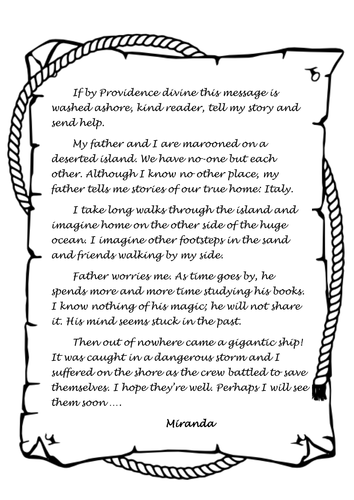 If by Providence divine this message is
washed ashore, kind reader, tell my story and
send help.
My father and I are marooned on a
deserted island. We have no-one but each
other. Although I know no other place, my
father tells me stories of our true home: Italy.
I take long walks through the island and
imagine home on the other side of the huge
ocean. I imagine other footsteps in the sand
and friends walking by my side.
Father worries me. As time goes by, he
spends more and more time studying his books.
I know nothing of his magic; he will not share
it. His mind seems stuck in the past.
Then out of nowhere came a gigantic ship!
It was caught in a dangerous storm and I
suffered on the shore as the crew battled to save
themselves. I hope they're well. Perhaps I will see
them soon ....
Miranda